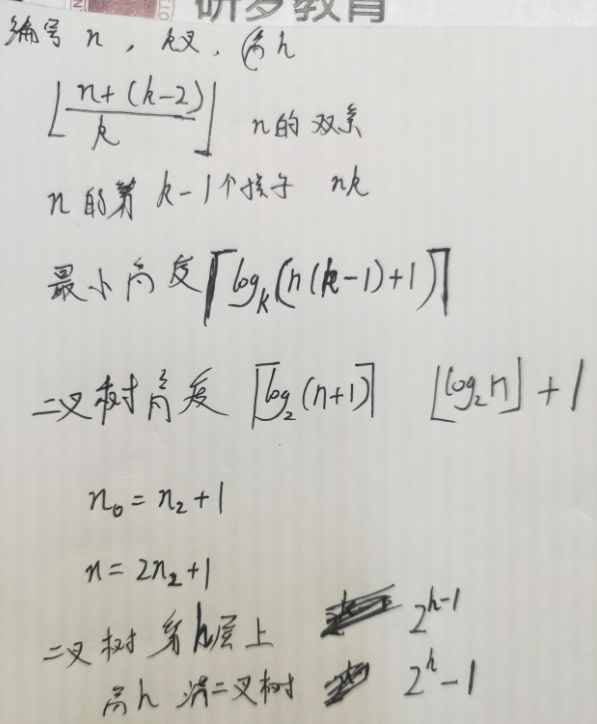 研梦教育
编号 n , k叉, 高h
⌊(n+(k-2))/k⌋ n的双亲
n的第k-1个孩子 nk
最小高度⌈log_k(n(k-1)+1)⌉
二叉树高度 ⌈log₂(n+1)⌉ ⌊log₂n⌋+1
n₀=n₂+1
n=2n₂+1
二叉树第h层上 2^(h-1)
高h 满二叉树 2^h-1